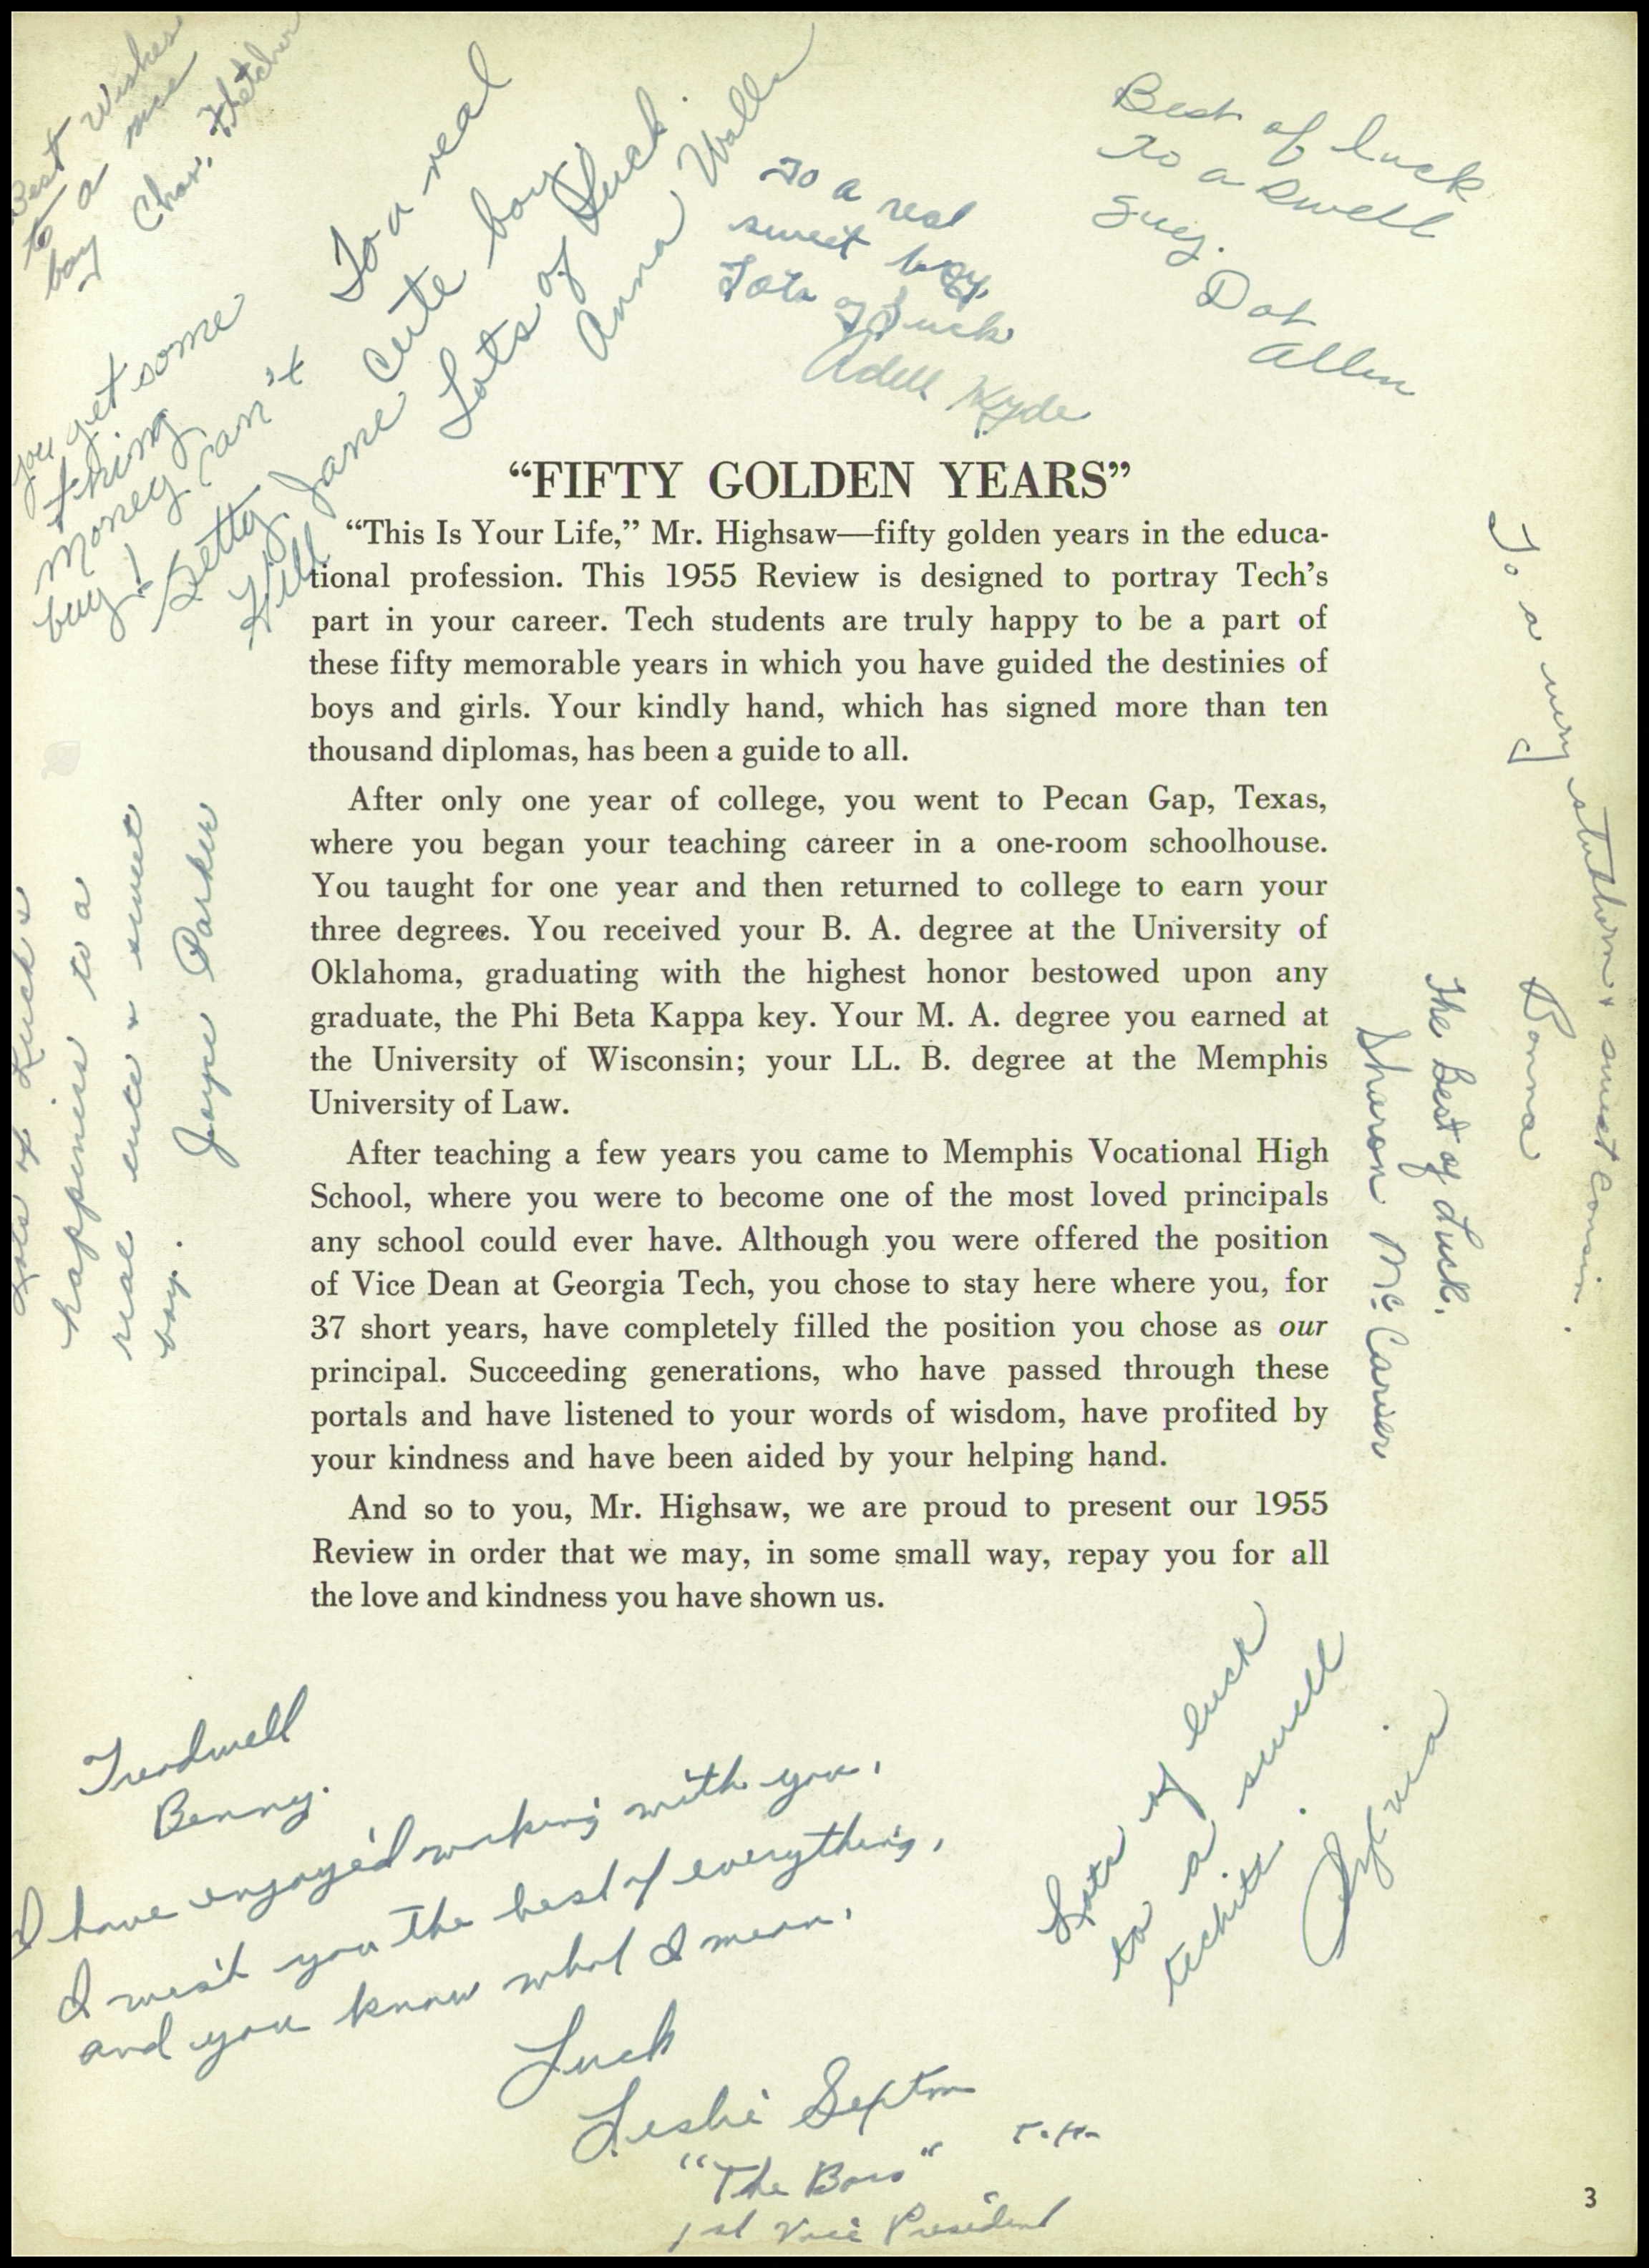 Best Wishes
to a nice
boy Char. Fletcher
To a real
cute boy
Lots of Luck.
Anna Walls
To a real
sweet boy.
Lots of Luck
Adell Kyde
Best of luck
To a Swell
Guy.
Dot
Allen
you get some
thing
money can't
buy!
Betty Jane
Hill
“FIFTY GOLDEN YEARS”
“This Is Your Life,” Mr. Highsaw—fifty golden years in the educa-
tional profession. This 1955 Review is designed to portray Tech’s
part in your career. Tech students are truly happy to be a part of
these fifty memorable years in which you have guided the destinies of
boys and girls. Your kindly hand, which has signed more than ten
thousand diplomas, has been a guide to all.
After only one year of college, you went to Pecan Gap, Texas,
where you began your teaching career in a one-room schoolhouse.
You taught for one year and then returned to college to earn your
three degrees. You received your B. A. degree at the University of
Oklahoma, graduating with the highest honor bestowed upon any
graduate, the Phi Beta Kappa key. Your M. A. degree you earned at
the University of Wisconsin; your LL. B. degree at the Memphis
University of Law.
After teaching a few years you came to Memphis Vocational High
School, where you were to become one of the most loved principals
any school could ever have. Although you were offered the position
of Vice Dean at Georgia Tech, you chose to stay here where you, for
37 short years, have completely filled the position you chose as our
principal. Succeeding generations, who have passed through these
portals and have listened to your words of wisdom, have profited by
your kindness and have been aided by your helping hand.
And so to you, Mr. Highsaw, we are proud to present our 1955
Review in order that we may, in some small way, repay you for all
the love and kindness you have shown us.
Lots of Luck &
happiness to a
real cute & sweet
boy.
Joyce Parker
To a very stubborn & sweet cousin.
Donna
The Best of Luck.
Sharon McCarver
Treadwell
Benny.
I have enjoyed working with you,
I wish you the best of everything,
and you know what I mean.
Luck
Leslie
"The Boss"
1st Vice President
Lots of luck
to a swell
techite.
Sylvia
3